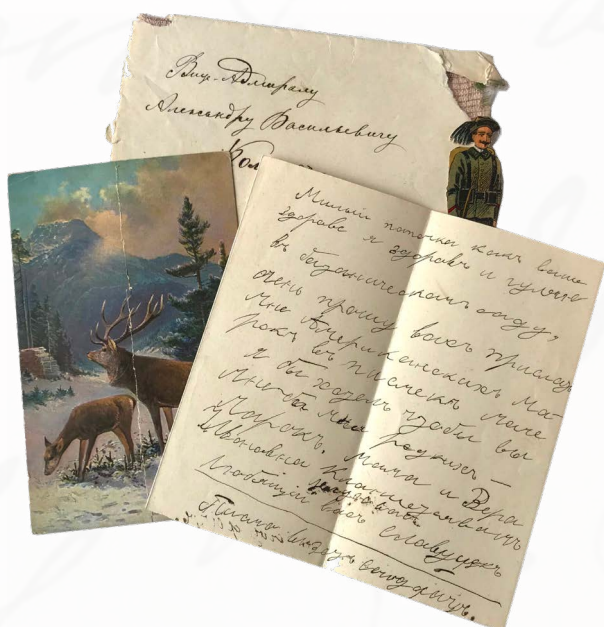 Вице-Адмиралу
Александру Васильевичу
Кол
Милый папочка какъ ваше
здорове я здоровъ и гуляю
въ ботаническомъ саду,
очень прошу васъ прислать
мне Американскихъ ма
рокъ въ письмекъ маме
я бы хотелъ чтобы вы
мне
Марокъ. Мама и Вера
Ивановна кланяются вамъ
Любящій васъ Славушка
Писалъ